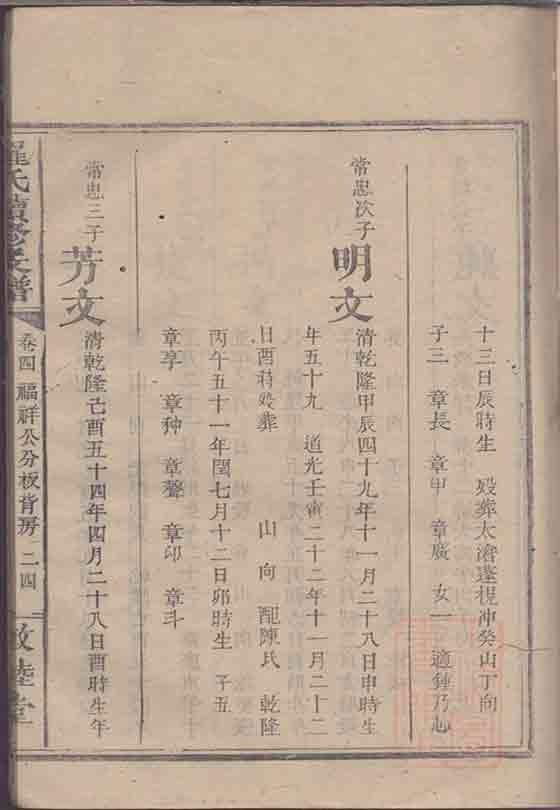 十三日辰時生　歿葬太滄蓬梘冲癸山丁向
子三　章長　章甲　章廣　女一　適鍾乃志
常忠次子
明文
清乾隆甲辰四十九年十一月二十八日申時生
年五十九　道光壬寅二十二年十一月二十二
日酉時歿葬　山　向　配陳氏　乾隆
丙午五十一年閏七月十二日卯時生　子五
章享　章种　章聲　章印　章斗
常忠三子
芳文
清乾隆己酉五十四年四月二十八日酉時生年
氏續修支譜
卷四　福祥公分板背房　二四
敦睦堂